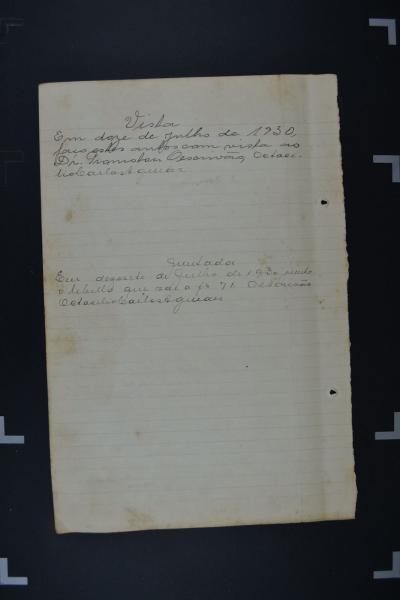 Vista
Em doze de Julho de 1930,
faço estes autos com vista ao
Dr. Promotor. O escrivão, Octaci-
lio Carlos Aguiar
Juntada
Em dezesete de Julho de 1930, junto
o libello que vai a fs 71. O escrivão
Octacilio Carlos Aguiar